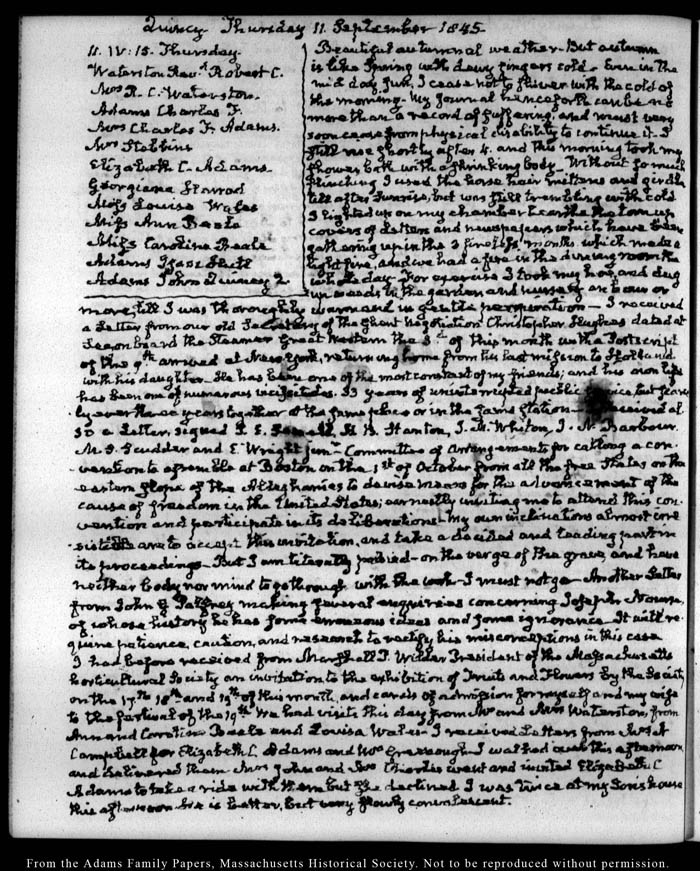 Quincy Thursday 11. September 1845.
11. IV:15. Thursday.
Waterston Revd Robert C.
Mrs R. C. Waterston.
Adams Charles F.
Mrs Charles F. Adams.
Mrs Stebbins
Elizabeth C. Adams.
Georgiana
Miss Louisa Wales
Miss Ann Beale
Miss Caroline Beale
Adams Isaac Hull
Adams John Quincy 2.
Beautiful autumnal weather. But autumn
is like Spring with dewy fingers cold. Even in the
mid day Sun, I cease not to shiver with the cold of
the morning. My Journal henceforth can be no
more than a record of suffering, and must very
soon cease from physical disability to continue it. I
still rise shortly after 4. and this morning took my
shower bath with a shrinking body. Without so much
flinching I used the horse hair mittens and girdle
till after Sunrise, but was still trembling with cold
I lighted up on my chamber hearth the torn up
covers of letters and newspapers which have been
gathering up in the months, which made a
light fire, and we had a fire in the dining room the
whole day. For exercise I took my hoe, and dug
up weeds in the garden and nursery an hour or
more, till I was thoroughly warm and in gentle perspiration — I received
a Letter from our old Secretary of the Ghent negotiation Christopher Hughes dated at
Sea on board the Steamer Great Western the of this month with a Postscript
of the 9th arrived at New-York, returning home from his last mission to Holland
with his daughter. He has been one of the most constant of my friends; and his own life
has been one of numerous vicissitudes. 33 years of uninterrupted public service, but scarce
ly ever three years together at the same place or in the same station — I received al
so a Letter, signed S. E. Sewall, H. B. Stanton, J. M. Whiton, J. N. Barbour.
M. S. Scudder and E. Wright junr Committee of arrangements for calling a con-
vention to assemble at Boston on the 1st of October from all the free States on the
eastern slope of the Alleghanies to devise means for the advancement of the
cause of freedom in the United States; earnestly inviting me to attend this con-
vention and participate in its deliberations — My own inclinations almost irre
sistible are to accept this invitation, and take a decided and leading part in
its proceedings — But I am literally palsied — on the verge of the grave, and have
neither body nor mind to go through with the work — I must not go — Another Letter
from John G Palfrey making several enquiries concerning Joseph Nourse,
of whose history he has some erroneous ideas and some ignorance. It will re-
quire patience, caution, and research to rectify his misconceptions in this case
I had before received from Marshall P. Wilder President of the Massachusetts
Horticultural Society an invitation to the exhibition of Fruits and Flowers by the Society
on the 17th 18th and 19th of this month, and cards of admission for myself and my wife
to the festival of the 19th We had visits this day from Mr and Mrs Waterston, from
Ann and Caroline Beale and Louisa Wales — I received Letters from Mrs A
Campbell for Elizabeth C. Adams and Mrs Greenough I walked out this afternoon
and delivered them. Mrs John and Mrs Charles went and invited Elizabeth C
Adams to take a ride with them but she declined I was twice at my Son's house
this afternoon — is better, but very slowly convalescent.
From the Adams Family Papers, Massachusetts Historical Society. Not to be reproduced without permission.